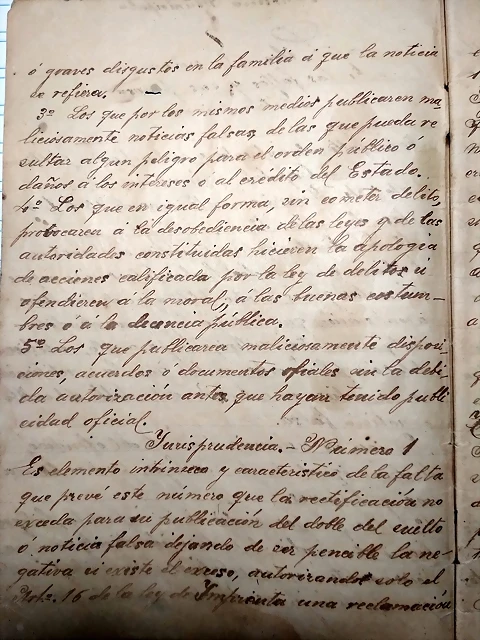 ó graves disgustos en la familia á que la noticia
se refiera. —
3º Los que por los mismos medios publicaren ma-
liciosamente noticias falsas, de las que pueda re
sultar algun peligro para el orden público ó
daños a los intereses o al crédito del Estado.
4º Los que en igual forma, sin cometer delito,
provocaren a la desobediencia de las leyes y de las
autoridades constituidas hicieren la apologia
de acciones calificada por la ley de delitos ú
ofendieren á la moral, á las buenas costum-
bres o á la decencia pública.
5º Los que publicaren maliciosamente disposi-
ciones, acuerdos ó documentos ofiales sin la debi
da autorización antes que hayan tenido publi
cidad oficial.
Jurisprudencia. — Número 1
Es elemento intrinseco y caracteristico de la falta
que prevé este número que la rectificación no
exceda para su publicación del doble del suelto
ó noticia falsa dejando de ser pencible la ne-
gativa si existe el exceso, autorizando solo el
Art. 16 de la ley de Imprenta una reclamación